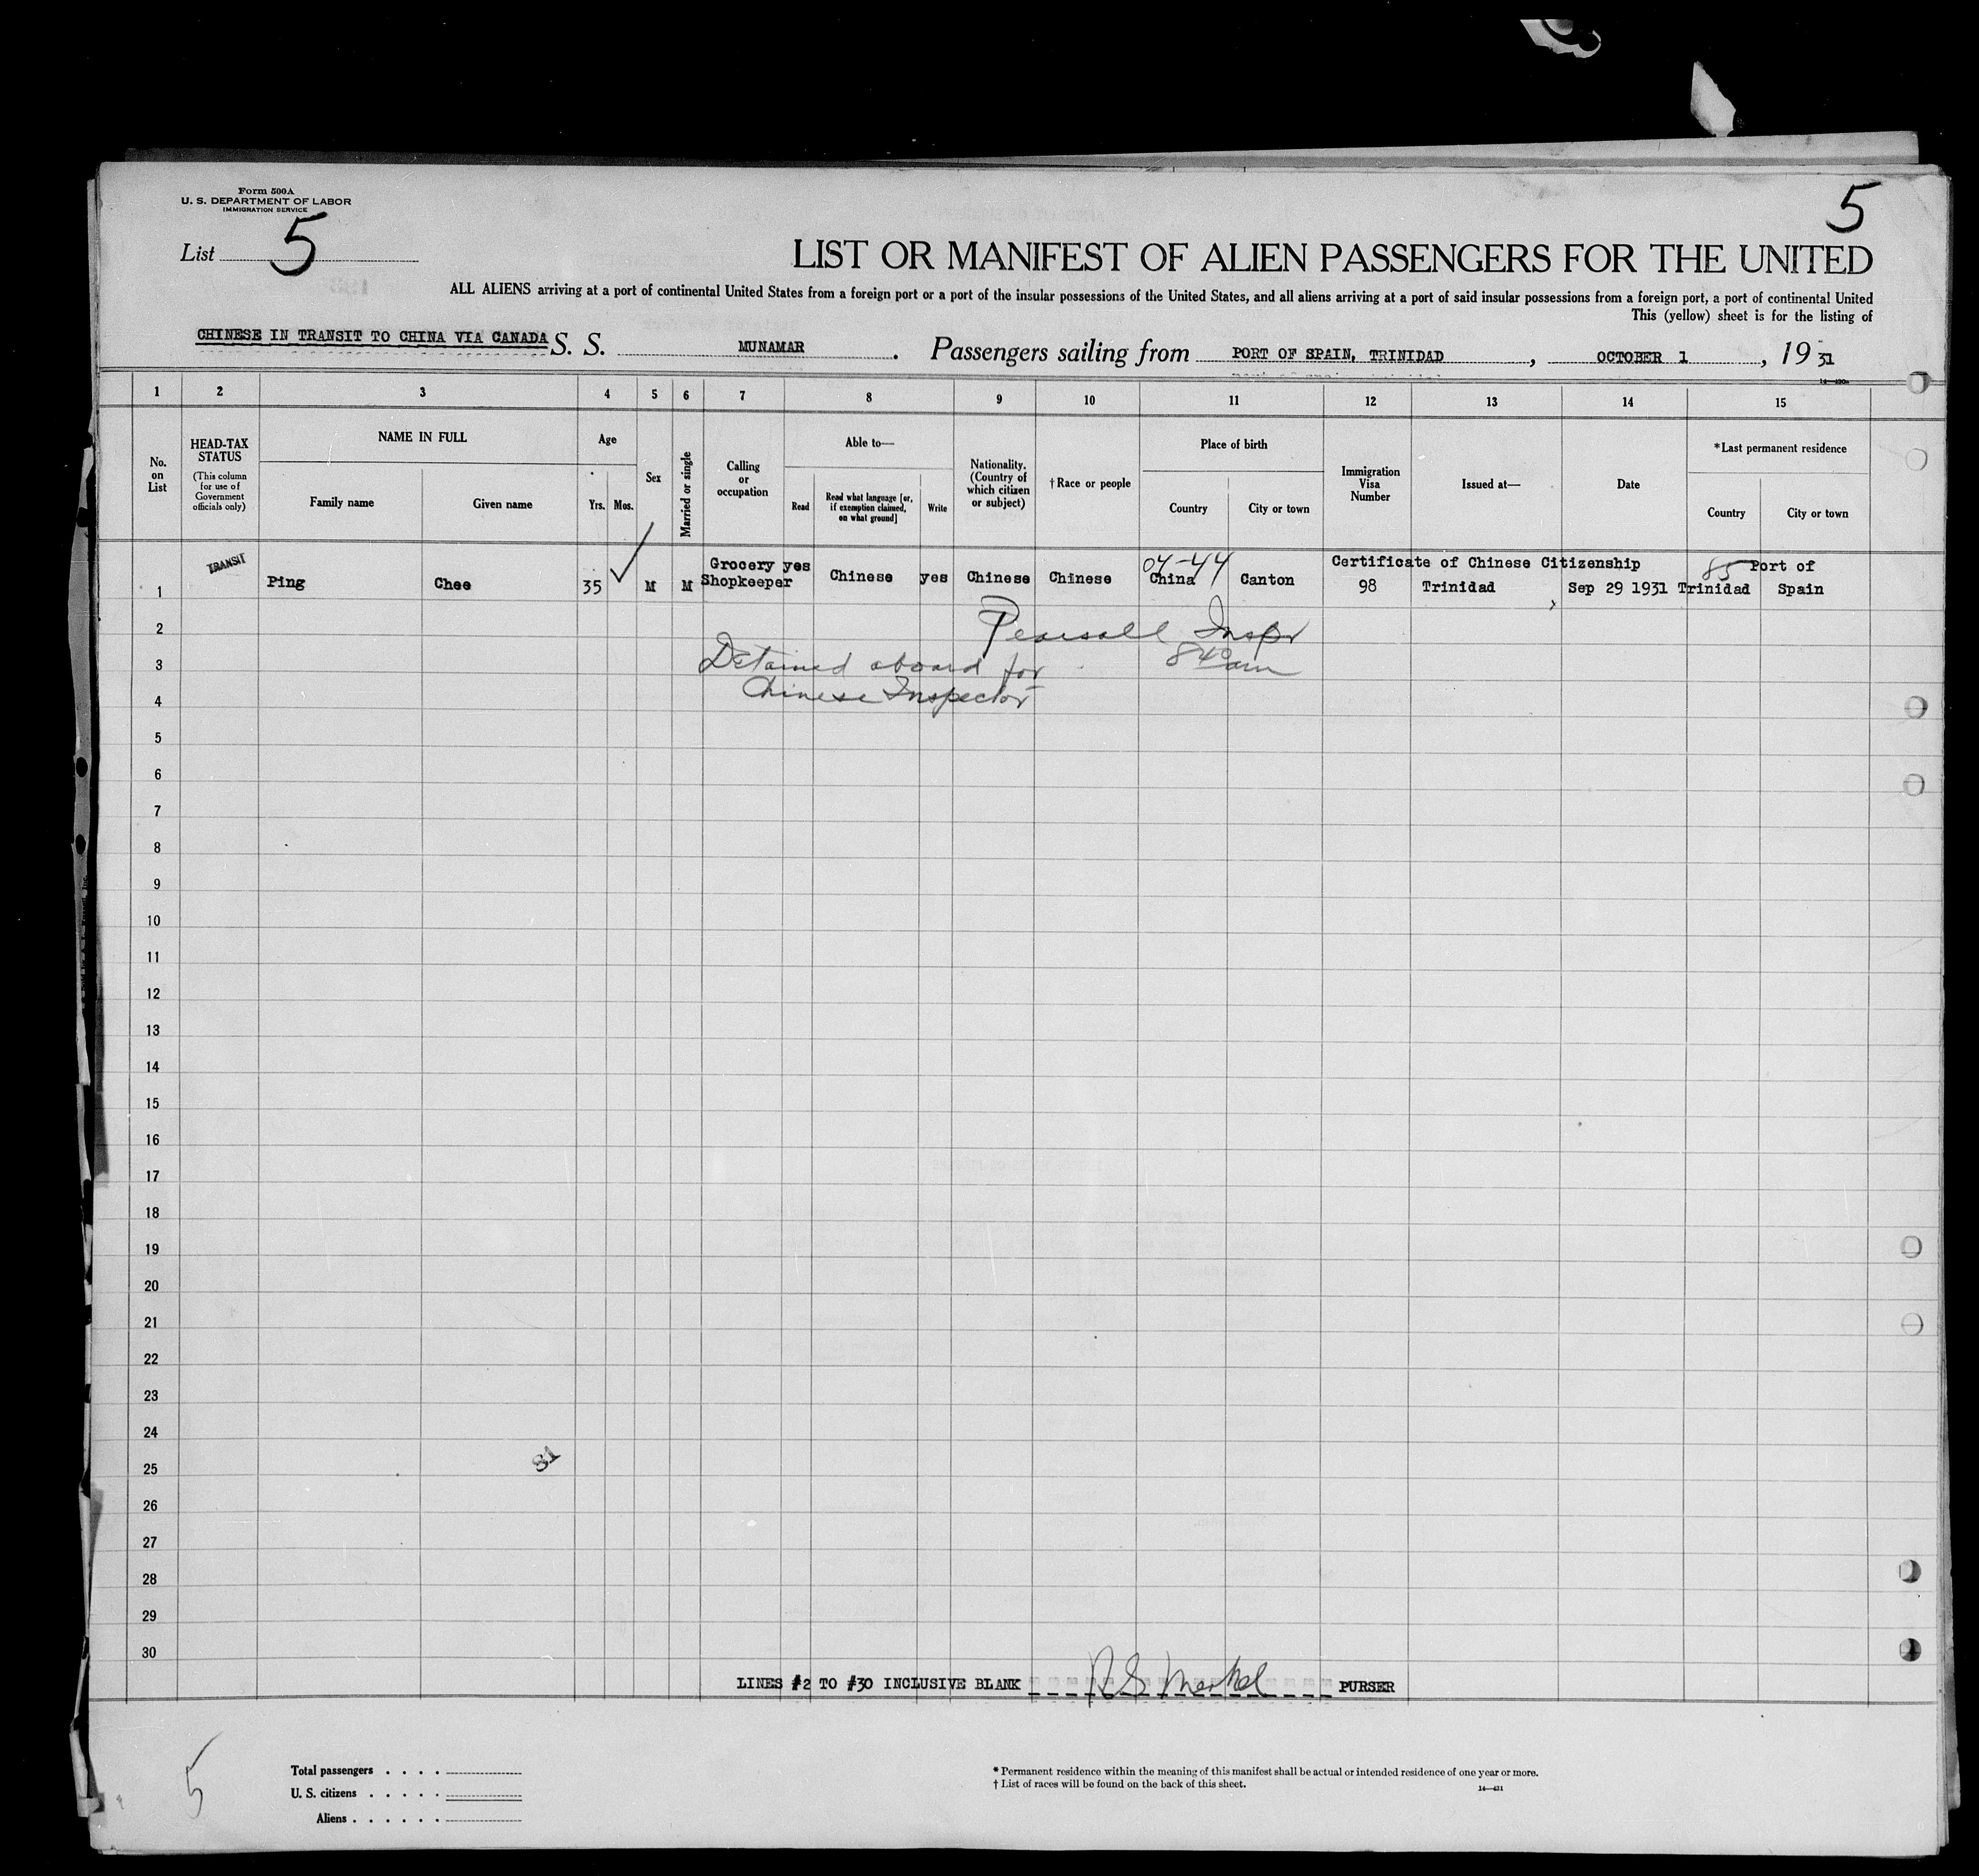 Form 500A
U. S. DEPARTMENT OF LABOR
IMMIGRATION SERVICE
5
List 5
LIST OR MANIFEST OF ALIEN PASSENGERS FOR THE UNITED
ALL ALIENS arriving at a port of continental United States from a foreign port or a port of the insular possessions of the United States, and all aliens arriving at a port of said insular possessions from a foreign port, a port of continental United
This (yellow) sheet is for the listing of
CHINESE IN TRANSIT TO CHINA VIA CANADA S. S. MUNAMAR . Passengers sailing from PORT OF SPAIN, TRINIDAD , OCTOBER 1 , 19 31
1 2 3 4 5 6 7 8 9 10 11 12 13 14 15
No. on List
HEAD-TAX STATUS (This column for use of Government officials only)
NAME IN FULL
Family name
Given name
Age
Yrs.
Mos.
Sex
Married or single
Calling or occupation
Able to—
Read
Read what language [or, if exemption claimed, on what ground]
Write
Nationality. (Country of which citizen or subject)
†Race or people
Place of birth
Country
City or town
Immigration Visa Number
Issued at—
Date
*Last permanent residence
Country
City or town
TRANSIT
04-44
85
Grocery yes Certificate of Chinese Citizenship Port of
1 Ping Chee 35 M M Shopkeeper Chinese yes Chinese Chinese China Canton 98 Trinidad Sep 29 1931 Trinidad Spain
2
Pearsall Inspr
3
Detained aboard for 8 40 am
4
Chinese Inspector
5
6
7
8
9
10
11
12
13
14
15
16
17
18
19
20
21
22
23
24
25
31
26
27
28
29
30
LINES #2 TO #30 INCLUSIVE BLANK PURSER
5
Total passengers . . . .
U. S. citizens . . . . .
Aliens . . . . . .
* Permanent residence within the meaning of this manifest shall be actual or intended residence of one year or more.
† List of races will be found on the back of this sheet.
14—431